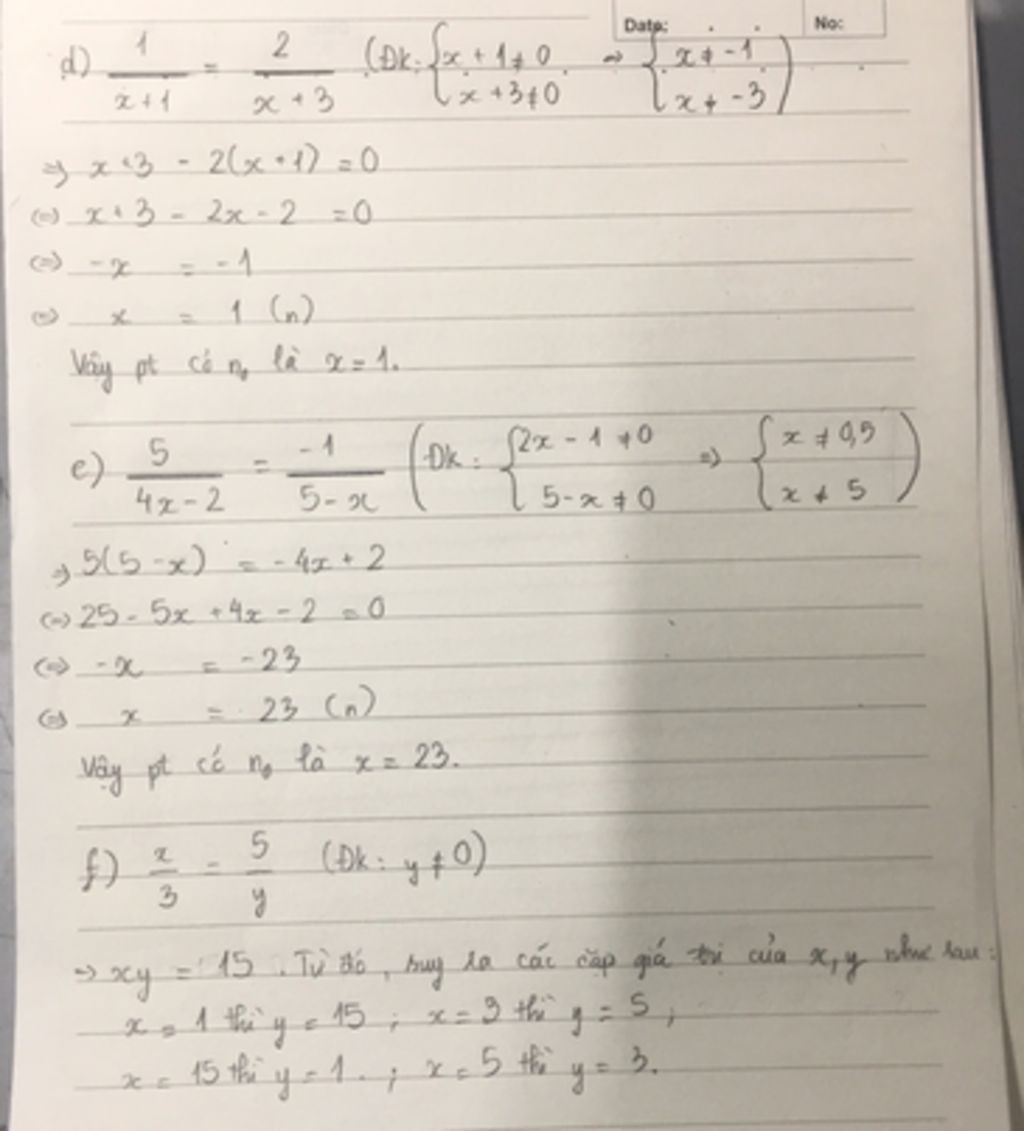 Date: . . No:
d) 1/(x+1) = 2/(x+3) (Đk: { x+1≠0 ; x+3≠0 => { x≠-1 ; x≠-3 )
=> x+3 - 2(x+1) = 0
(=) x+3 - 2x - 2 = 0
(=) -x = -1
(=) x = 1 (n)
Vậy pt có nº là x = 1.
e) 5/(4x-2) = -1/(5-x) (Đk: { 2x-1≠0 ; 5-x≠0 => { x≠0,5 ; x≠5 )
=> 5(5-x) = -4x+2
(=) 25 - 5x + 4x - 2 = 0
(=) -x = -23
(=) x = 23 (n)
Vậy pt có nº là x = 23.
f) x/3 = 5/y (Đk: y≠0)
=> xy = 15. Từ đó, suy ra các cặp giá trị của x, y như sau:
x = 1 thì y = 15 ; x = 3 thì y = 5 ;
x = 15 thì y = 1. ; x = 5 thì y = 3.